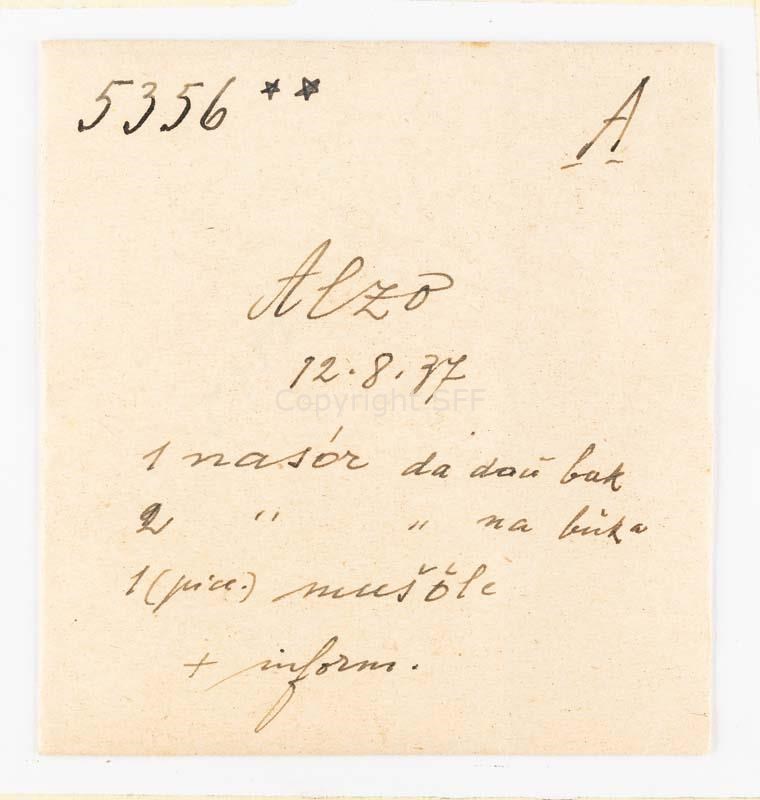 5356 **
A
Alzo
12.8.37
Copyright SFF
1 nasór da dou buk
2 " " na büka
1 (pice.) mušöle
+ inform.